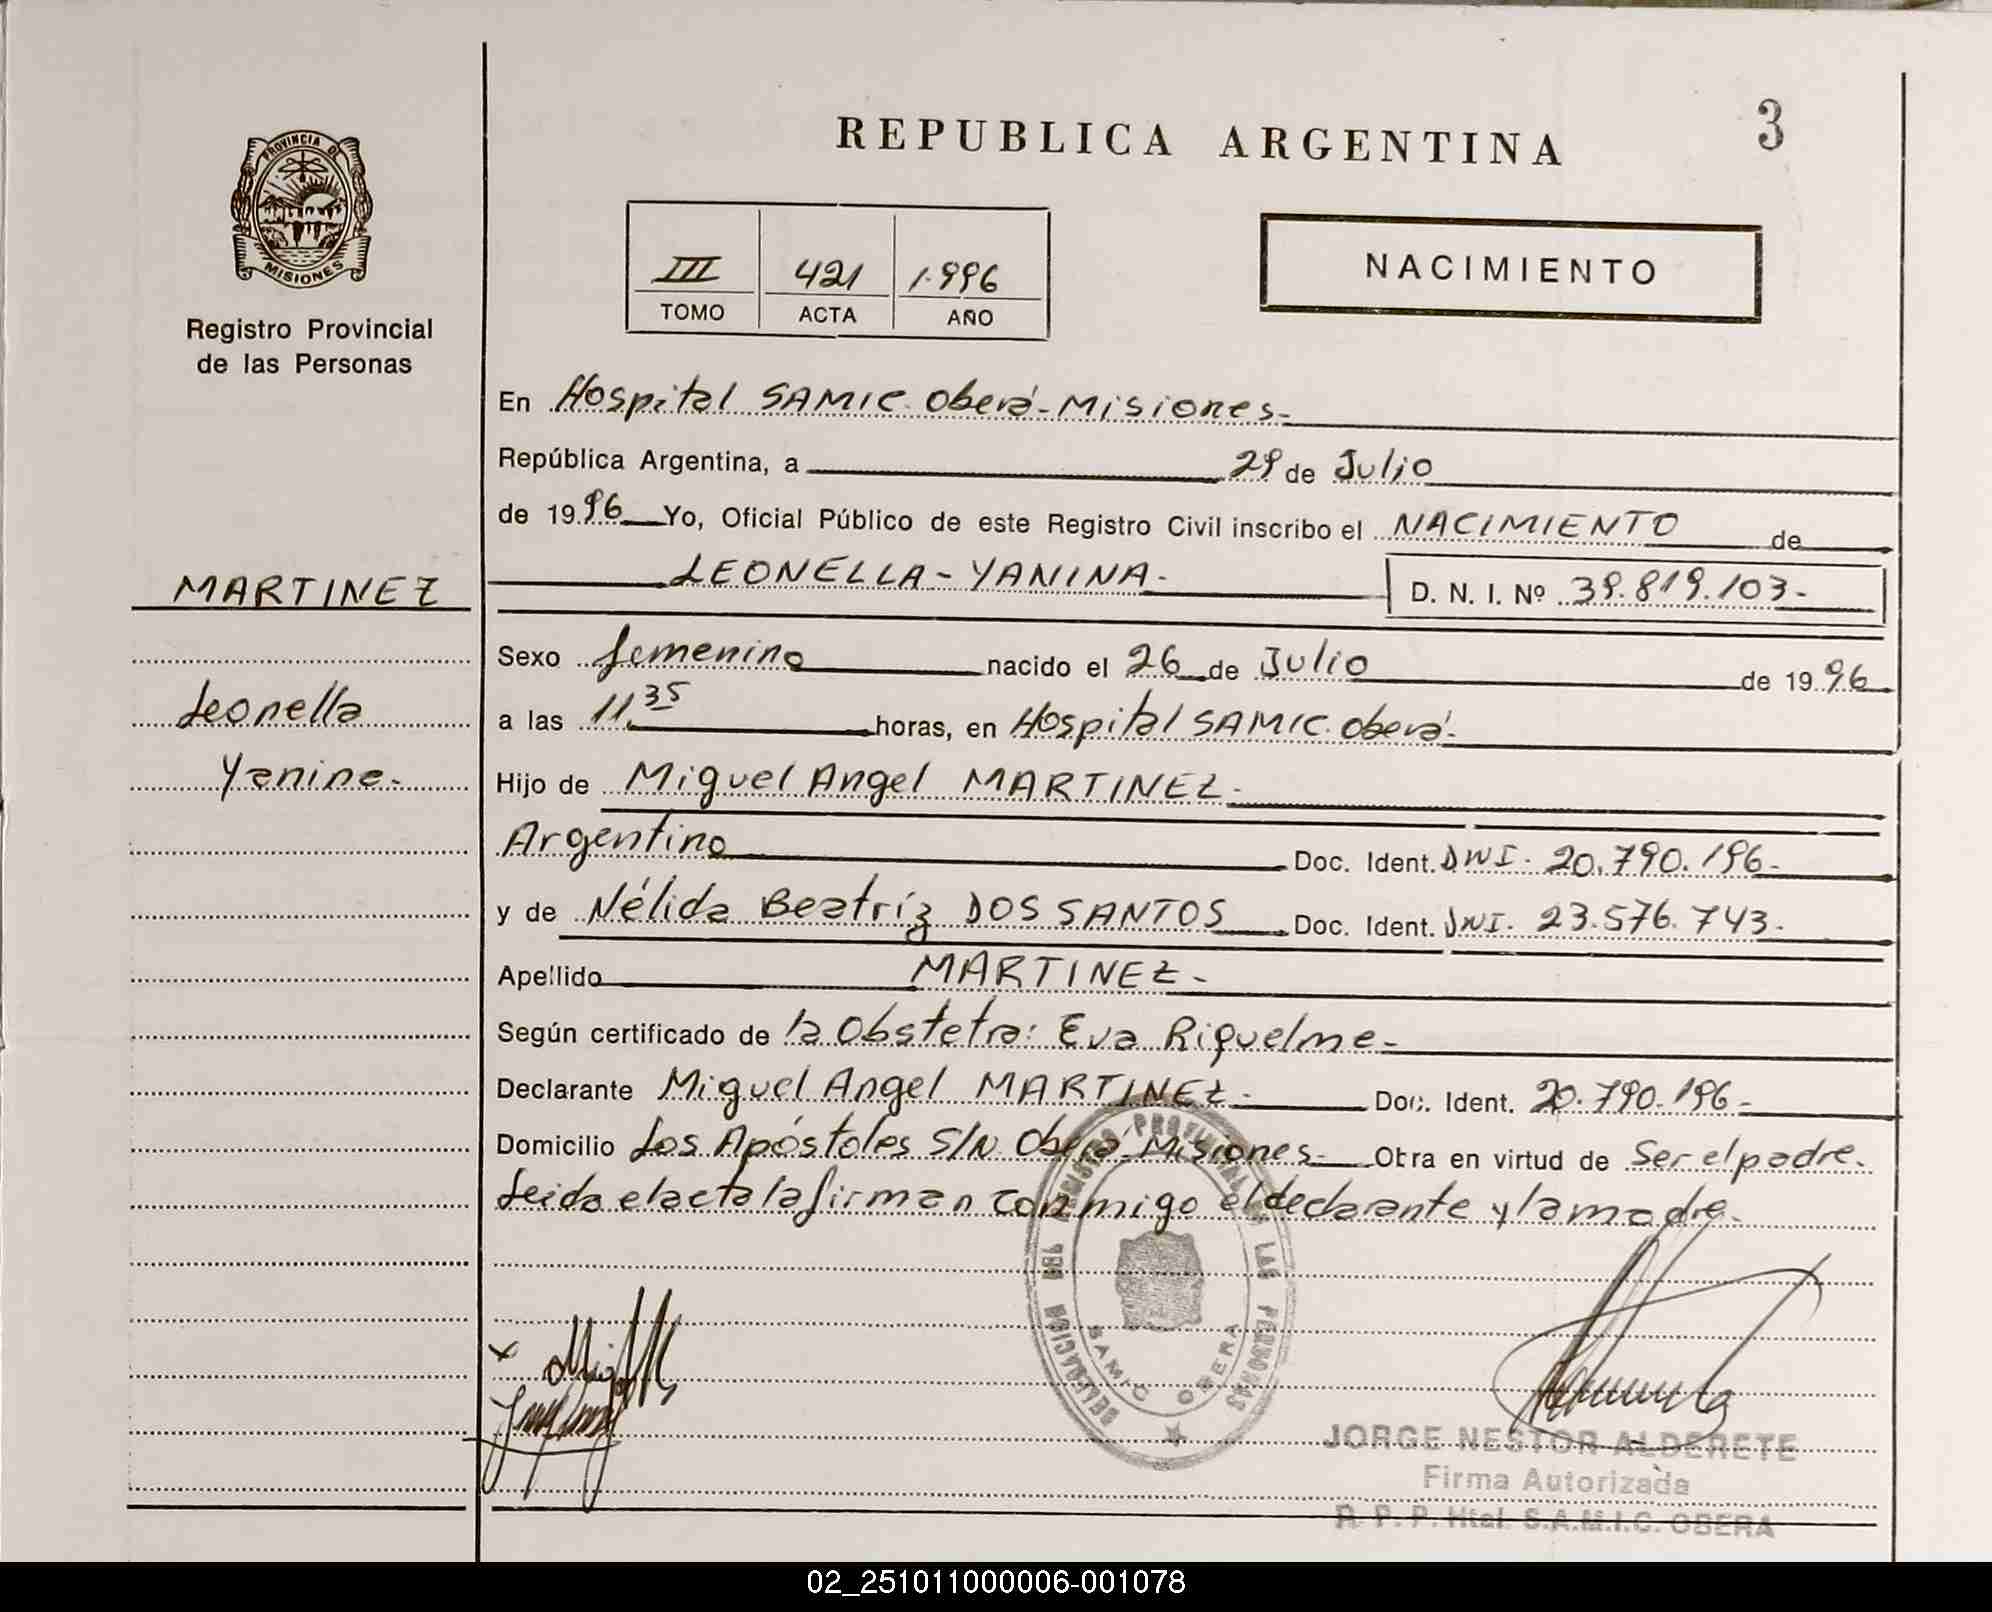 REPUBLICA ARGENTINA
3
PROVINCIA DE
MISIONES
Registro Provincial
de las Personas
III 421 1.996
TOMO ACTA AÑO
NACIMIENTO
En Hospital SAMIC. Oberá-Misiones-
República Argentina, a 29 de Julio
de 1996 Yo, Oficial Público de este Registro Civil inscribo el NACIMIENTO de
LEONELLA-YANINA- D. N. I. Nº 39.819.103-
MARTINEZ
Leonella
Yanina-
Sexo femenino nacido el 26 de Julio de 1996
a las 11.35 horas, en Hospital SAMIC. Oberá-
Hijo de Miguel Angel MARTINEZ-
Argentino Doc. Ident. DNI. 20.790.196-
y de Nélida Beatríz DOS SANTOS Doc. Ident. DNI. 23.576.743-
Apellido MARTINEZ-
Según certificado de la Obstetra: Eva Riquelme-
Declarante Miguel Angel MARTINEZ- Doc. Ident. 20.790.196-
Domicilio Los Apóstoles S/N. Oberá-Misiones- Obra en virtud de Ser el padre-
Leida el acta la firman conmigo el declarante y la madre-
REGISTRO PROVINCIAL DE LAS PERSONAS
DELEGACION
SAMIC OBERA
JORGE NESTOR ALDERETE
Firma Autorizada
R. P. P. Htal. S.A.M.I.C. OBERA
02_251011000006-001078